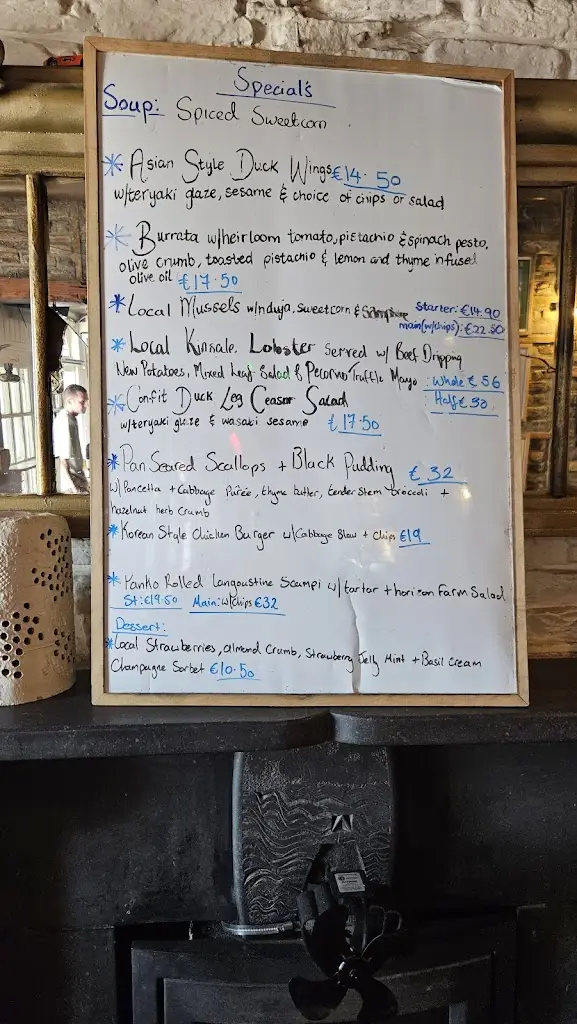 Special's
Soup: Spiced Sweetcorn
* Asian Style Duck Wings €14.50
w/teryaki glaze, sesame & choice of chips or salad
* Burrata w/heirloom tomato, pistachio & spinach pesto,
olive crumb, toasted pistachio & lemon and thyme infused
olive oil €17.50
* Local Mussels w/nduja, sweetcorn & Samphire Starter: €14.90
main(w/chips): €22.50
* Local Kinsale Lobster Served w/ Beef Dripping
New Potatoes, Mixed Leaf Salad & Pecorino/Truffle Mayo : Whole € 56
: Half € 30
* Confit Duck Leg Ceasar Salad
w/teryaki glaze & wasabi sesame €17.50
* Pan Seared Scallops + Black Pudding €32
w/Pancetta + Cabbage Purée, thyme butter, tender stem brocoli +
hazelnut herb crumb
* Korean Style Chicken Burger w/Cabbage Slaw + Chips €19
* Panko Rolled Langoustine Scampi w/tartar + horizon Farm Salad
St: €19.50 Main: w/chips €32
Dessert:
* Local Strawberries, almond Crumb, Strawberry Jelly Mint + Basil Cream
Champagne Sorbet €10.50